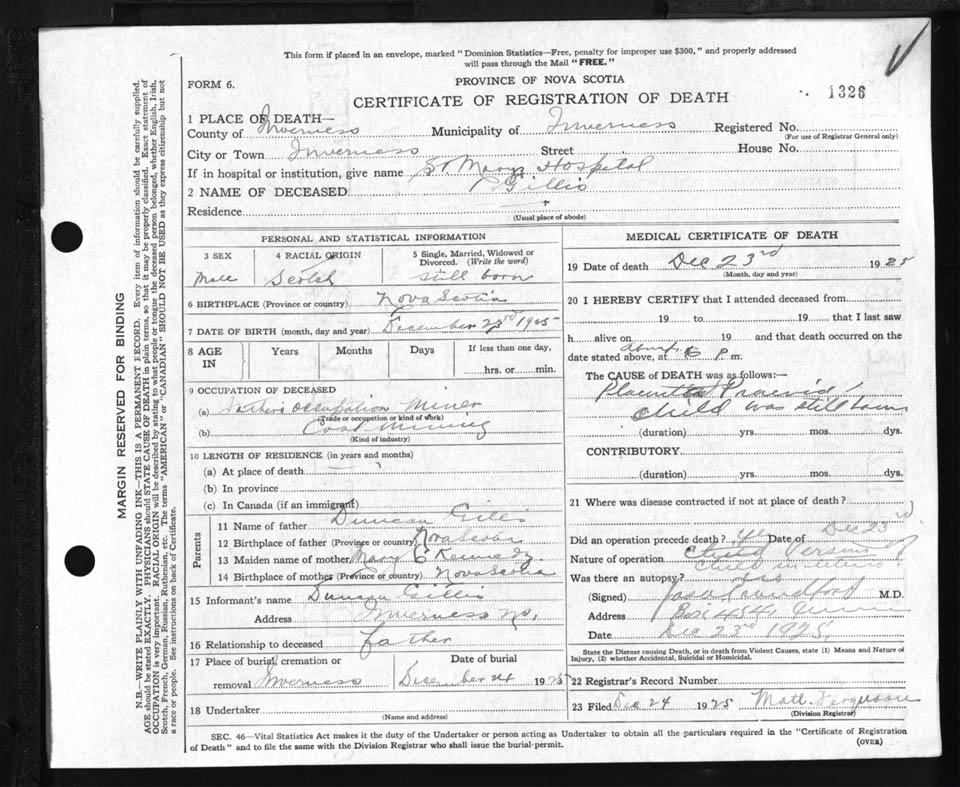 This form if placed in an envelope, marked "Dominion Statistics—Free, penalty for improper use $300," and properly addressed
will pass through the Mail "FREE."
FORM 6.
PROVINCE OF NOVA SCOTIA
1326
CERTIFICATE OF REGISTRATION OF DEATH
1 PLACE OF DEATH—
County of Inverness Municipality of Inverness Registered No.
(For use of Registrar General only)
City or Town Inverness Street House No.
If in hospital or institution, give name St Marys Hospital
2 NAME OF DECEASED Gillis
Residence
(Usual place of abode)
PERSONAL AND STATISTICAL INFORMATION
3 SEX 4 RACIAL ORIGIN 5 Single, Married, Widowed or
Divorced. (Write the word)
Male Scotch still born
6 BIRTHPLACE (Province or country) Nova Scotia
7 DATE OF BIRTH (month, day and year) December 23rd 1925
8 AGE IN Years Months Days If less than one day,
hrs. or min.
9 OCCUPATION OF DECEASED
(a) Fathers occupation Miner
(Trade or occupation or kind of work)
(b) Coal Mining
(Kind of industry)
10 LENGTH OF RESIDENCE (in years and months)
(a) At place of death
(b) In province
(c) In Canada (if an immigrant)
Parents
11 Name of father Duncan Gillis
12 Birthplace of father (Province or country) Nova Scotia
13 Maiden name of mother Mary C Kennedy
14 Birthplace of mother (Province or country) Nova Scotia
15 Informant's name Duncan Gillis
Address Inverness NS.
16 Relationship to deceased father
17 Place of burial, cremation or Date of burial
removal Inverness December 24 1925
18 Undertaker
(Name and address)
MEDICAL CERTIFICATE OF DEATH
19 Date of death Dec 23rd 1925
(Month, day and year)
20 I HEREBY CERTIFY that I attended deceased from
19 to 19 that I last saw
h alive on 19 and that death occurred on the
date stated above, at about 6 P m.
The CAUSE OF DEATH was as follows:—
Placenta Praevia
Child was still born
(duration) yrs. mos. dys.
CONTRIBUTORY
(duration) yrs. mos. dys.
21 Where was disease contracted if not at place of death?
Did an operation precede death? Date of Dec 23rd
Nature of operation Child Version of
child in utero
Was there an autopsy?
(Signed) M.D.
Address Box 454
Date Dec 23rd 1925.
State the Disease causing Death, or in death from Violent Causes, state (1) Means and Nature of
Injury, (2) whether Accidental, Suicidal or Homicidal.
22 Registrar's Record Number
23 Filed Dec 24 1925 Matt. Ferguson
(Division Registrar)
SEC. 46—Vital Statistics Act makes it the duty of the Undertaker or person acting as Undertaker to obtain all the particulars required in the "Certificate of Registration
of Death" and to file the same with the Division Registrar who shall issue the burial-permit.
(OVER)
MARGIN RESERVED FOR BINDING
N.B.—WRITE PLAINLY, WITH UNFADING INK—THIS IS A PERMANENT RECORD. Every item of information should be carefully supplied.
AGE should be stated EXACTLY. PHYSICIANS should STATE CAUSE OF DEATH in plain terms, so that it may be properly classified. Exact statement of
OCCUPATION is very important. RACIAL ORIGIN will be described by stating to what people or tongue the deceased person belonged, whether English, Irish,
Scotch, French, German, Russian, Ruthenian, etc. The terms "AMERICAN" or "CANADIAN" SHOULD NOT BE USED as they express citizenship but not
a race or people. See instructions on back of Certificate.